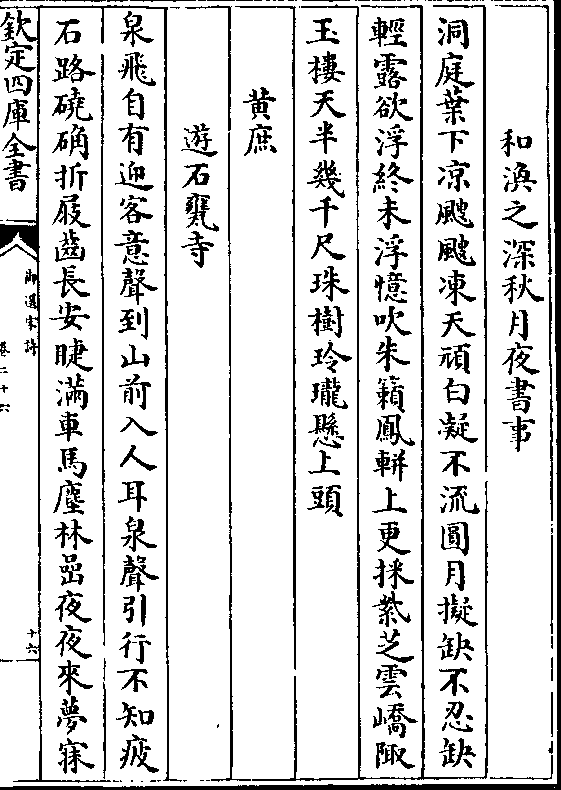 和渙之深秋月夜書事
洞庭葉下凉颼颼凍天頑白凝不流圓月擬缺不忍缺
輕露欲浮終未浮憶吹朱籟鳳輧上更採紫芝雲嶠陬
玉樓天半幾千尺珠樹玲瓏懸上頭
黄庶
遊石甕寺
泉飛自有迎客意聲到山前入人耳泉聲引行不知疲
石路磽确折屐齒長安睫滿車馬塵林喦夜夜來夢寐
欽定四庫全書
御選宋詩
卷二十六
十六